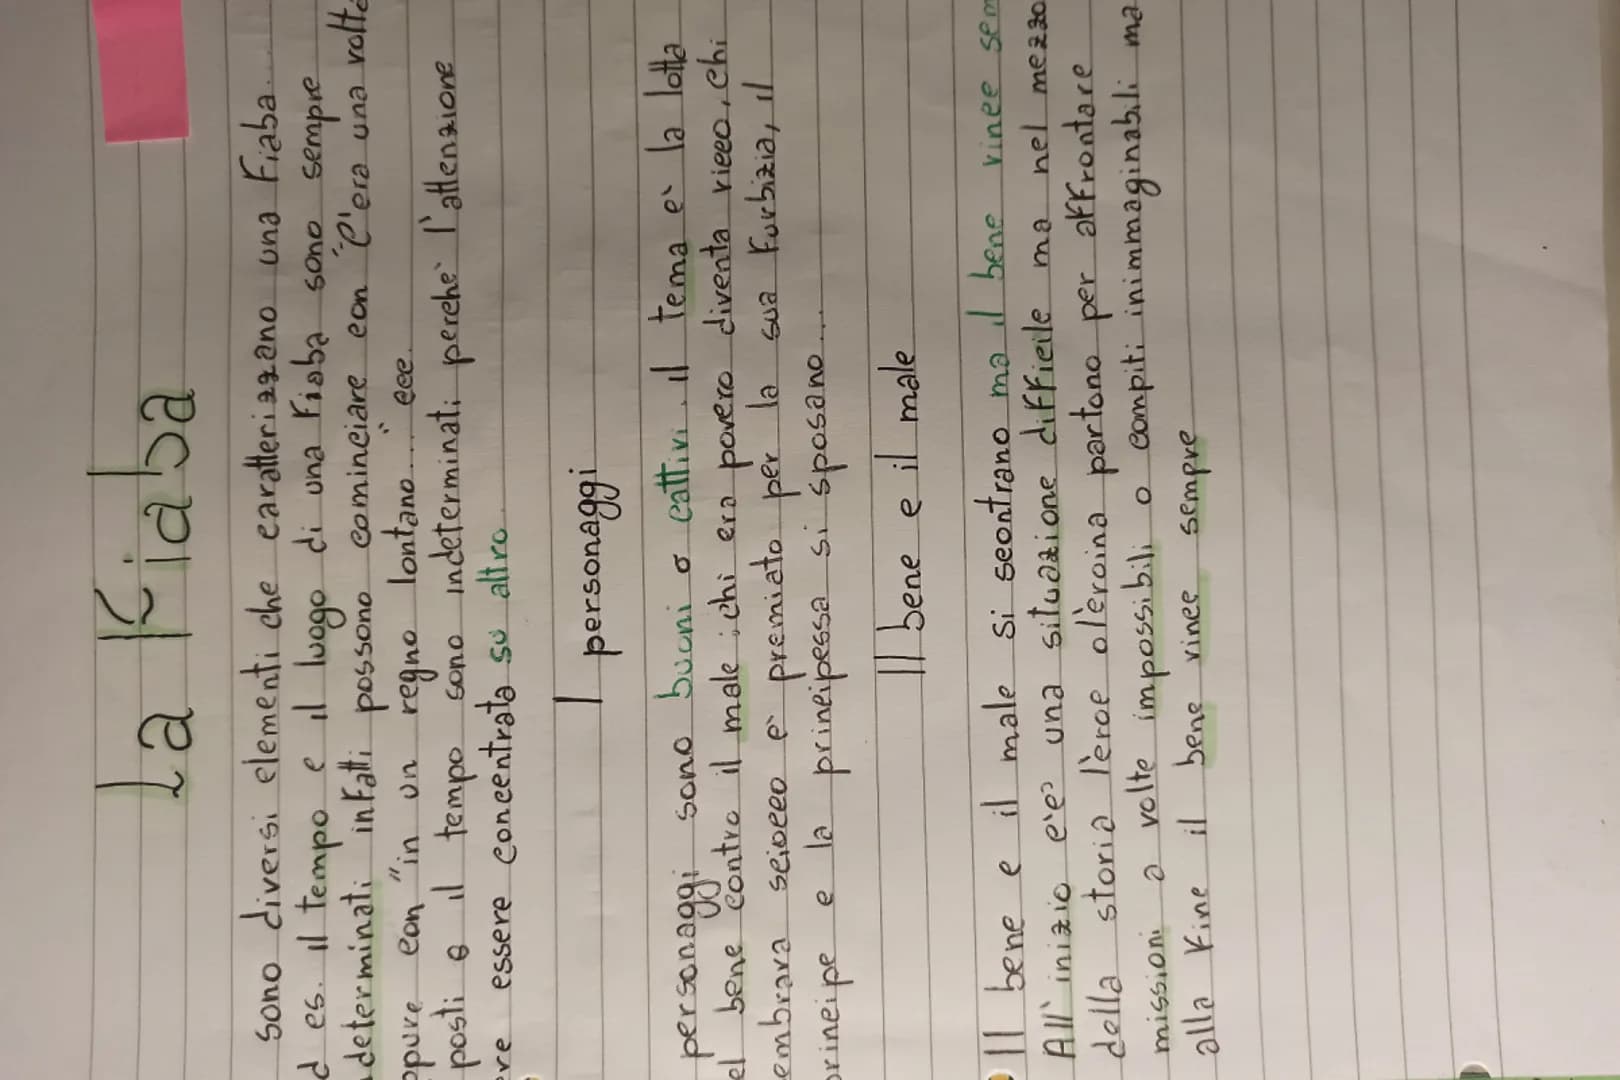 La Fiaba
sono diversi elementi che caratterizzano una Fiaba...
d es. il tempo e il luogo di una Fiaba sono sempre
determinati infatti possono cominciare con "C'era una volta
ppure con "in un regno lontano..." ecc.
posti e il tempo sono indeterminati perchè l'attenzione
re essere concentrata su altro.
I personaggi
personaggi sono buoni o cattivi. il tema e' la lotta
el bene contro il male: chi era povero diventa ricco, chi
embrava sciocco e' premiato per la sua Furbizia, il
principe e la principessa si sposano...
Il bene e il male
Il bene e il male si scontrano ma il bene vince sem
All'inizio c'e' una situazione difficile ma nel mezzo
della storia l'eroe o l'eroina partono per affrontare
missioni a volte impossibili o compiti inimmaginabili ma
alla Fine il bene vince sempre